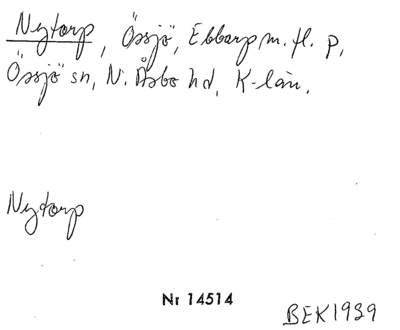 Nytorp, Össjö, Ebbarp m. fl. p,
Össjö sn, N. Åsbo hd, K-län.
Nytorp
Nr 14514
BEK1939